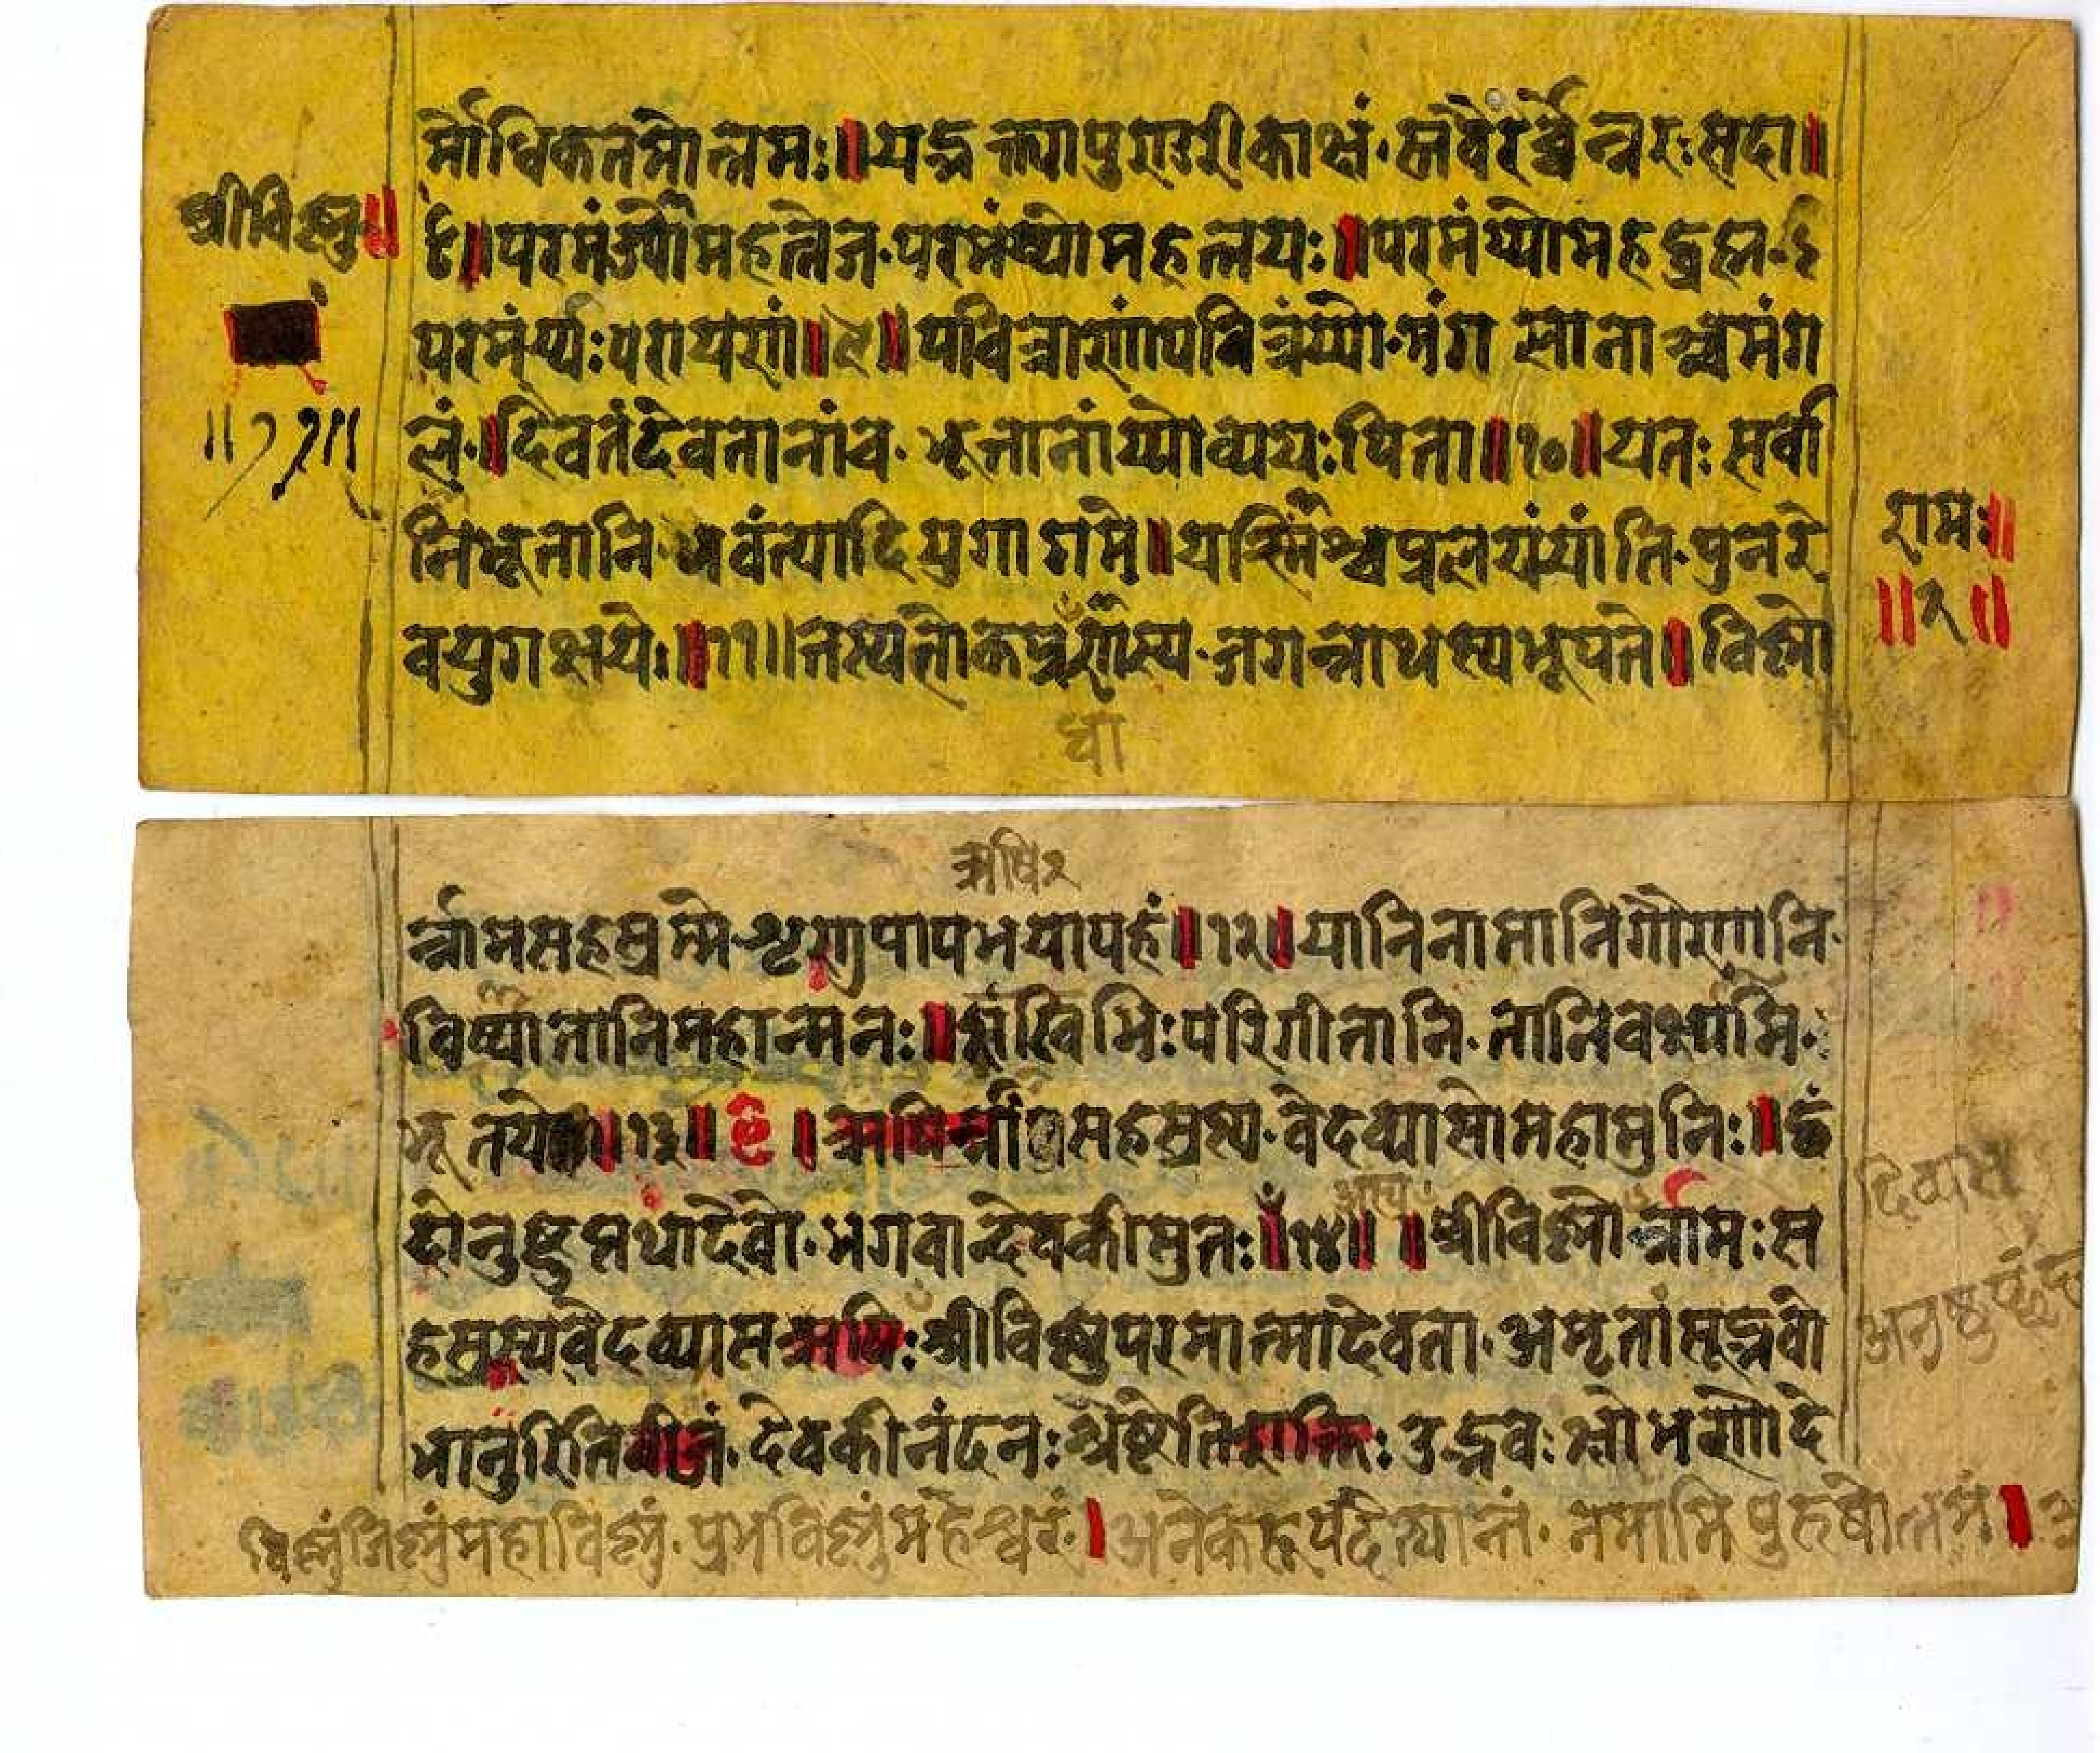 र्मोधिकतमोत्तमः॥यद्भक्त्यापुण्डरीकाक्षं·स्तवैरर्च्चेन्नरःसदा॥
श्रीविष्णु॥
८॥परमंय्योमहत्तेज·परमंय्योमहत्तपः॥परमंय्योमहद्ब्रह्म·
परमंर्य्यःपरायणं॥९॥पवित्राणांपवित्रंय्यो·मंगलानाञ्चमंग
लं·॥दैवतंदेवतानांच·भूतानांय्योव्ययःपिता॥१०॥यतःसर्वा
निभूतानि·भवंत्यादियुगागमे॥यस्मिंश्चप्रलयंयांति·पुनरे
रामः॥
॥२॥
वयुगक्षये·॥११॥तस्यलोकप्रधानस्य·जगन्नाथस्यभूपते॥विष्णो
धा
ऋषि१
र्न्नामसहस्रम्मे·शृणुपापभयापहं॥१२॥यानिनामानिगौणानि·
विख्यातानिमहात्मनः॥ऋषिभिःपरिगीतानि·तानिवक्ष्यामि·
भूतये॥१३॥ ॥ऋषिर्न्नाम्नांसहस्रस्य·वेदव्यासोमहामुनिः॥छं
दोनुष्टुप्तथादेवो·भगवान्देवकीसुतः॥१४॥ ॥श्रीविष्णोर्न्नामःस
दिव्यस
अस्य
हस्रस्यवेदव्यासऋषिःश्रीविष्णुपरमात्मादेवता·अमृतांसूद्भवो
अनुष्टुप्छंद
भानुरितिबीजं·देवकीनंदनःश्रेष्टेतिशक्तिः·उद्भवःक्षोभणोदे
विष्णुंजिष्णुंमहाविष्णुं·प्रभविष्णुंमहेश्वरं·।अनेकरूपदैत्यान्तं·नमामिपुरुषोत्तमं।